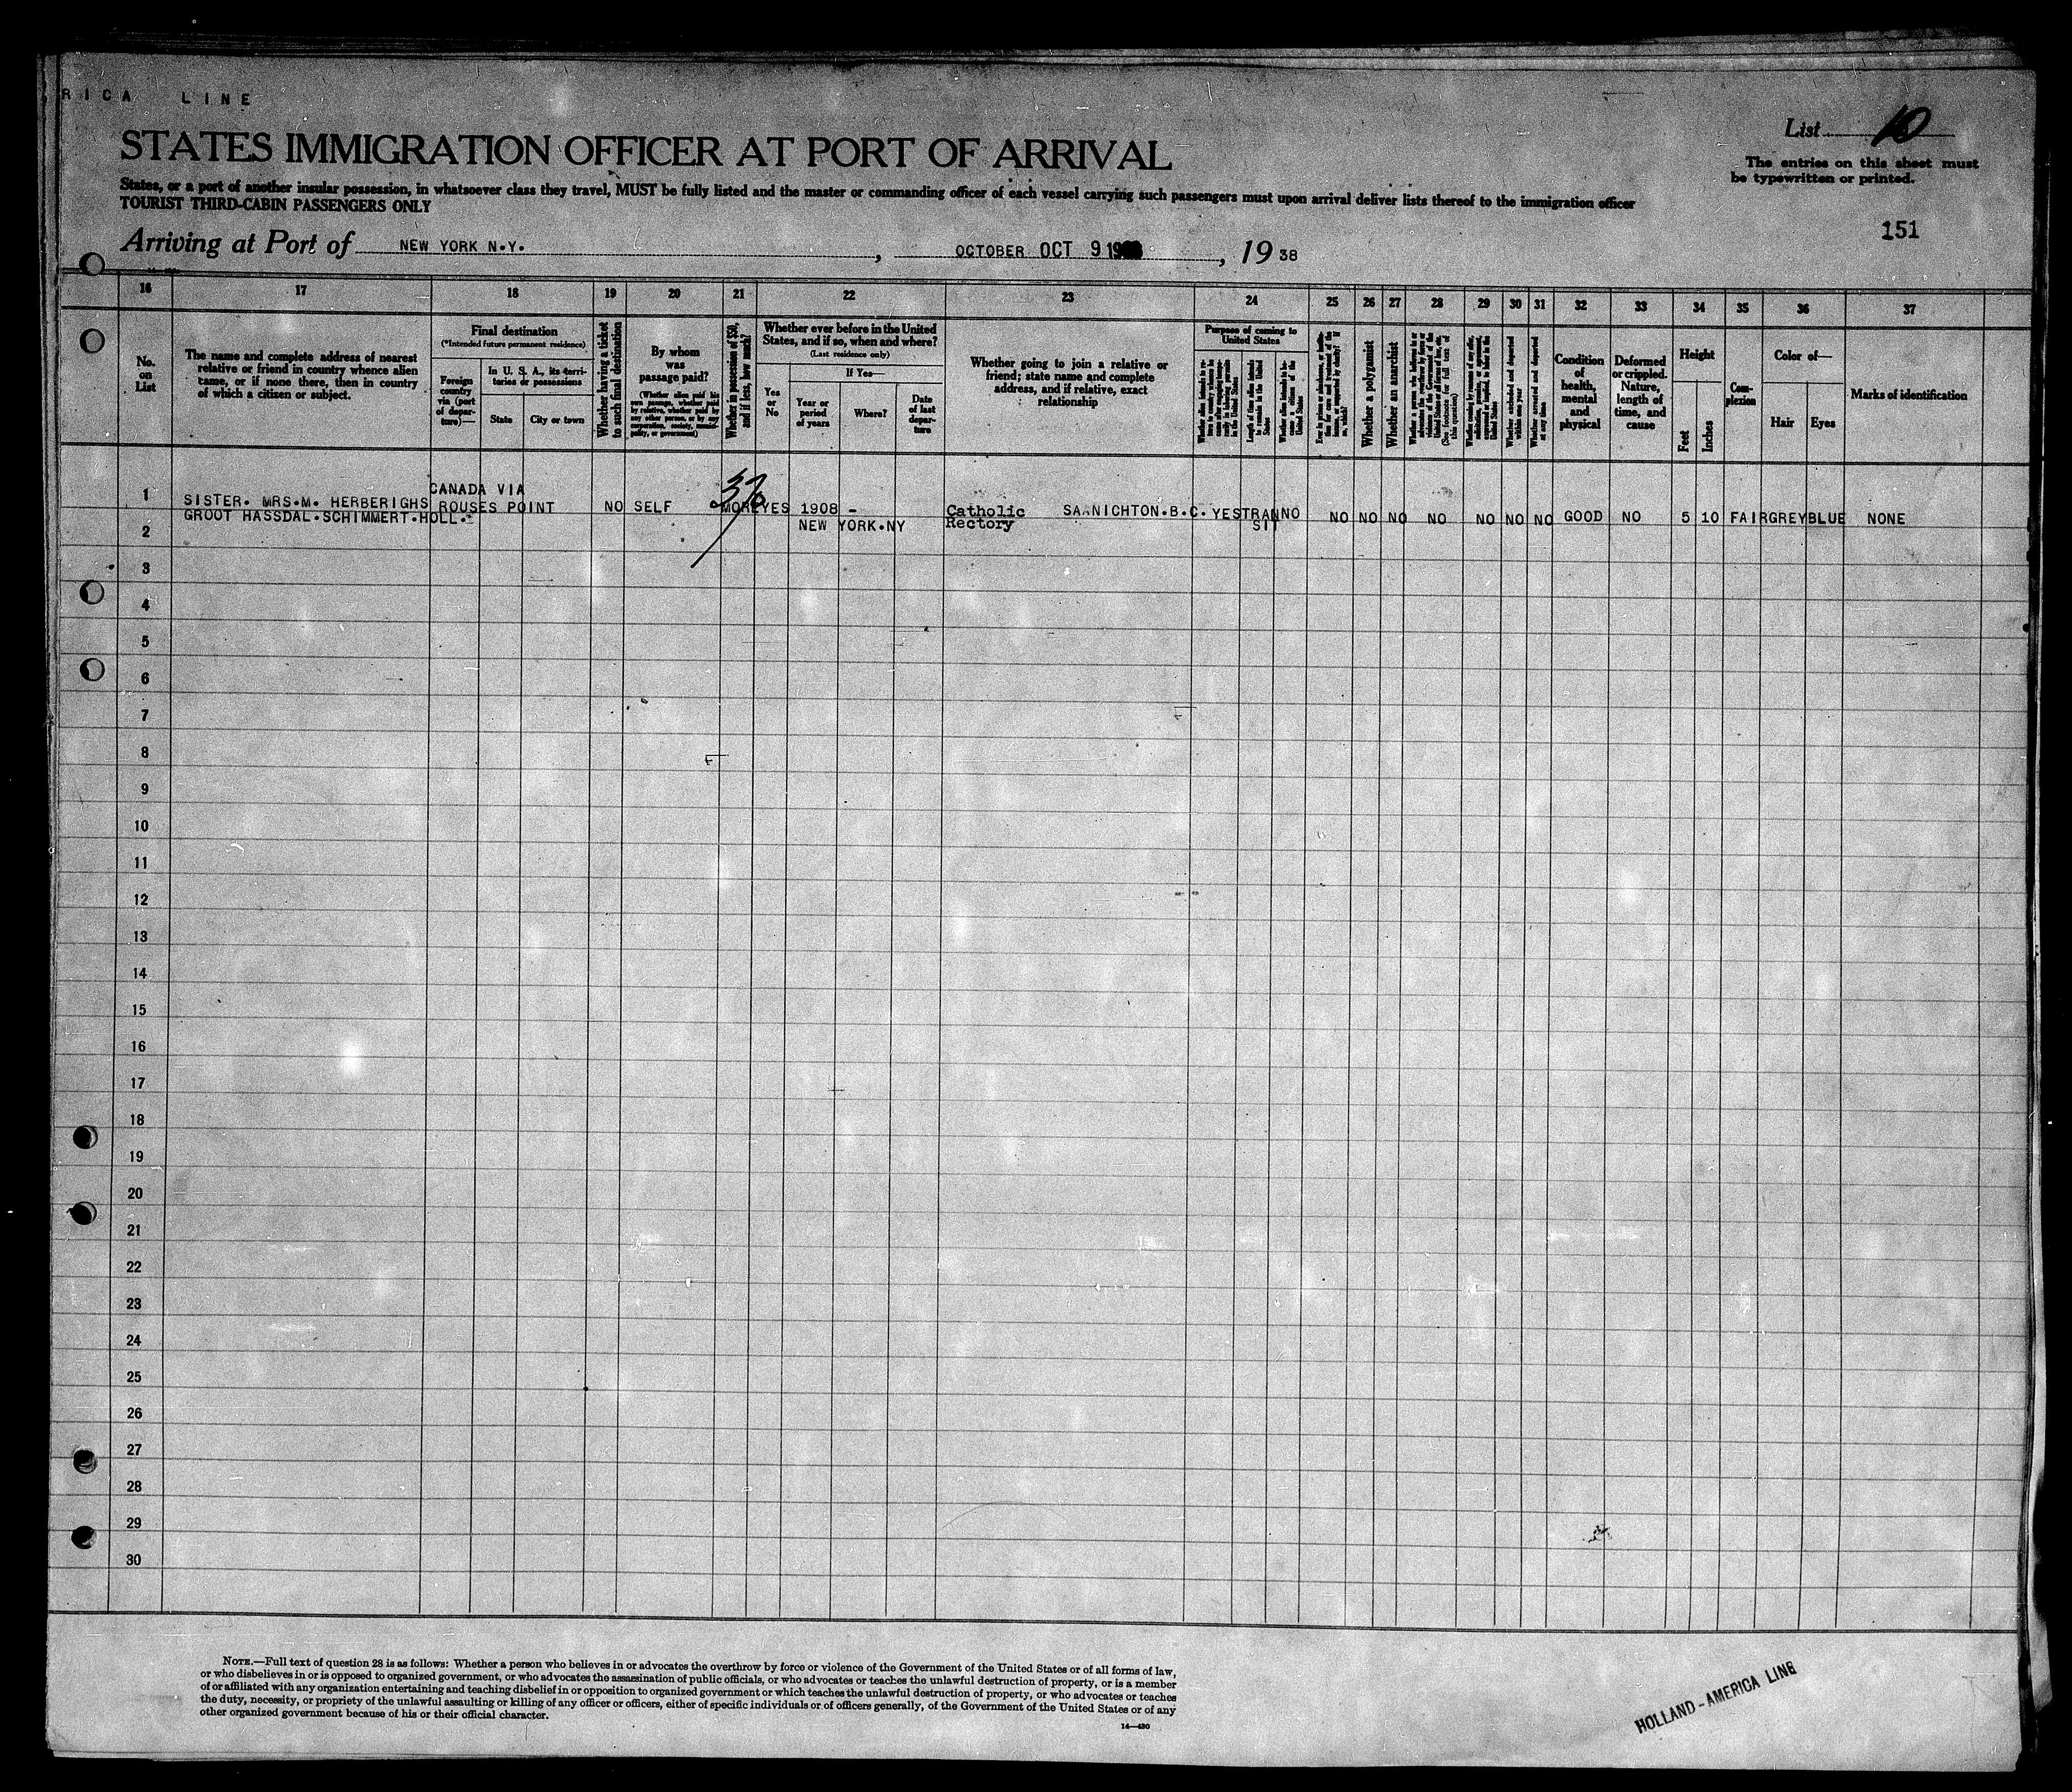 RICA LINE
STATES IMMIGRATION OFFICER AT PORT OF ARRIVAL
List 10
The entries on this sheet must
be typewritten or printed.
States, or a port of another insular possession, in whatsoever class they travel, MUST be fully listed and the master or commanding officer of each vessel carrying such passengers must upon arrival deliver lists thereof to the immigration officer
TOURIST THIRD-CABIN PASSENGERS ONLY
151
Arriving at Port of NEW YORK N.Y. , OCTOBER OCT 9 19 , 19 38
16 17 18 19 20 21 22 23 24 25 26 27 28 29 30 31 32 33 34 35 36 37
No.
on
List
The name and complete address of nearest
relative or friend in country whence alien
came, or if none there, then in country
of which a citizen or subject.
Final destination
(*Intended future permanent residence)
Foreign
country
via (port
of depar-
ture)—
In U. S. A., its terri-
tories or possessions
State
City or town
Whether having a ticket
to such final destination
By whom
was
passage paid?
(Whether alien paid his
own passage, whether paid
by relative, whether paid by
any other person, or by any
corporation, society, munici-
pality, or government)
Whether in possession of $50,
and if less, how much?
Whether ever before in the United
States, and if so, when and where?
(Last residence only)
Yes
or
No
If Yes—
Year or
period
of years
Where?
Date
of last
depar-
ture
Whether going to join a relative or
friend; state name and complete
address, and if relative, exact
relationship
Purpose of coming to
United States
Length of time alien intends
to remain in the United
States
Whether a polygamist
Whether an anarchist
Condition
of
health,
mental
and
physical
Deformed
or crippled.
Nature,
length of
time, and
cause
Height
Feet
Inches
Com-
plexion
Color of—
Hair
Eyes
Marks of identification
CANADA VIA
1 SISTER. MRS.M. HERBERIGHS ROUSES POINT NO SELF MORE YES 1908 - Catholic SAANICHTON.B.C. YES TRAN NO NO NO NO NO NO NO NO GOOD NO 5 10 FAIR GREY BLUE NONE
GROOT HASSDAL.SCHIMMERT.HOLL. NEW YORK.NY Rectory SIT
2
3
4
5
6
7
8
9
10
11
12
13
14
15
16
17
18
19
20
21
22
23
24
25
26
27
28
29
30
NOTE.—Full text of question 28 is as follows: Whether a person who believes in or advocates the overthrow by force or violence of the Government of the United States or of all forms of law,
or who disbelieves in or is opposed to organized government, or who advocates the assassination of public officials, or who advocates or teaches the unlawful destruction of property, or is a member
of or affiliated with any organization entertaining and teaching disbelief in or opposition to organized government or which teaches the unlawful destruction of property, or who advocates or teaches
the duty, necessity, or propriety of the unlawful assaulting or killing of any officer or officers, either of specific individuals or of officers generally, of the Government of the United States or of any
other organized government because of his or their official character.
14—430
HOLLAND-AMERICA LINE